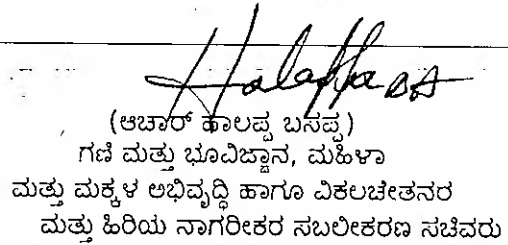 Halappa BA
(ಆಚಾರ್ ಹಾಲಪ್ಪ ಬಸಪ್ಪ)
ಗಣಿ ಮತ್ತು ಭೂವಿಜ್ಞಾನ, ಮಹಿಳಾ
ಮತ್ತು ಮಕ್ಕಳ ಅಭಿವೃದ್ಧಿ ಹಾಗೂ ವಿಕಲಚೇತನರ
ಮತ್ತು ಹಿರಿಯ ನಾಗರೀಕರ ಸಬಲೀಕರಣ ಸಚಿವರು